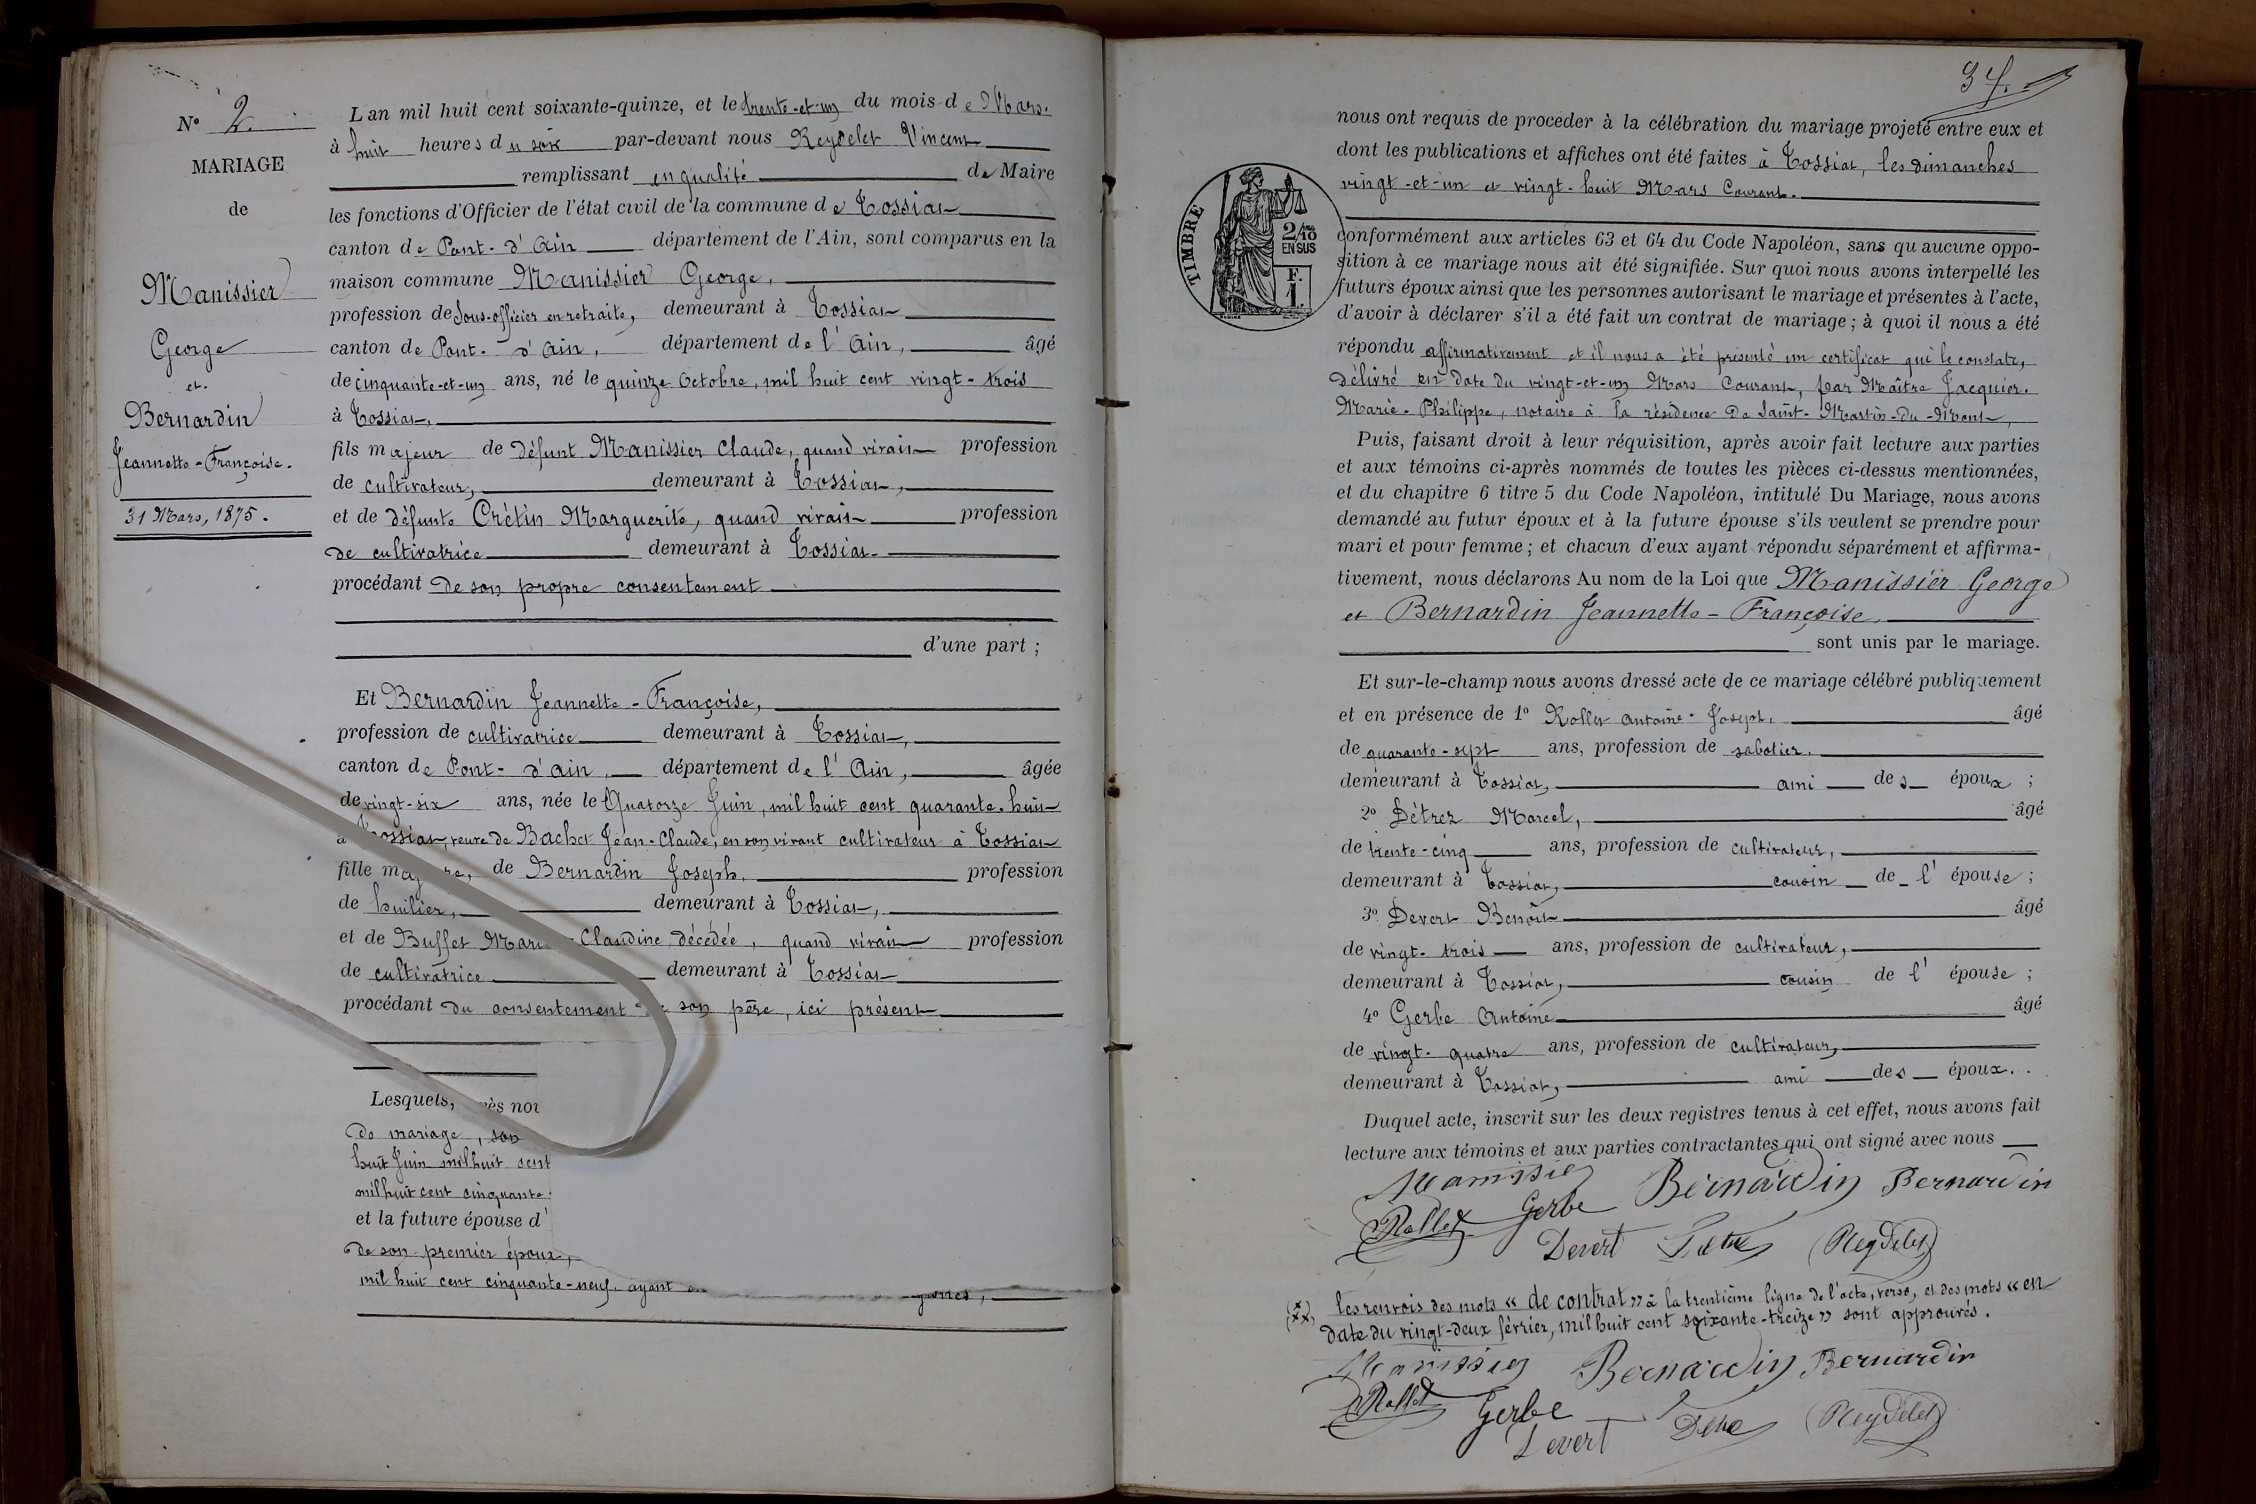 N° 2.
MARIAGE
de
Manissier
George
et
Bernardin
Jeannette-Françoise.
31 Mars, 1875.
L'an mil huit cent soixante-quinze, et le trente-et-un du mois de Mars.
à huit heures du soir par-devant nous Reydelet Vincent
remplissant en qualité de Maire
les fonctions d'Officier de l'état civil de la commune de Tossiat
canton de Pont-d'Ain département de l'Ain, sont comparus en la
maison commune Manissier George,
profession de Sous-officier en retraite, demeurant à Tossiat
canton de Pont-d'Ain, département de l'Ain, âgé
de cinquante-et-un ans, né le quinze Octobre, mil huit cent vingt-trois
à Tossiat,
fils majeur de défunt Manissier Claude, quand vivait profession
de cultivateur, demeurant à Tossiat,
et de défunte Crétin Marguerite, quand vivait profession
de cultivatrice demeurant à Tossiat
procédant de son propre consentement
d'une part ;
Et Bernardin Jeannette-Françoise,
profession de cultivatrice demeurant à Tossiat,
canton de Pont-d'ain, département de l'Ain, âgée
de vingt-six ans, née le Quatorze Juin, mil huit cent quarante-huit
à Tossiat, veuve de Bachet Jean-Claude, en son vivant cultivateur à Tossiat
fille majeure, de Bernardin Joseph, profession
de huilier, demeurant à Tossiat,
et de Buffet Marie-Claudine décédée, quand vivait profession
de cultivatrice demeurant à Tossiat
procédant du consentement de son père, ici présent
Lesquels, près nou
de mariage, son
huit Juin mil huit cent
mil huit cent cinquante-
et la future épouse d'
de son premier époux,
mil huit cent cinquante-neuf, ayant
34.
nous ont requis de procéder à la célébration du mariage projeté entre eux et
dont les publications et affiches ont été faites à Tossiat, les dimanches
vingt-et-un et vingt-huit Mars Courant.
TIMBRE
2/10
EN SUS
F.
1.
conformément aux articles 63 et 64 du Code Napoléon, sans qu'aucune oppo-
sition à ce mariage nous ait été signifiée. Sur quoi nous avons interpellé les
futurs époux ainsi que les personnes autorisant le mariage et présentes à l'acte,
d'avoir à déclarer s'il a été fait un contrat de mariage ; à quoi il nous a été
répondu affirmativement et il nous a été présenté un certificat qui le constate,
délivré en date du vingt-et-un Mars Courant, par Maître Jacquier.
Marie-Philippe, notaire à la résidence de Saint-Martin-du-Mont,
Puis, faisant droit à leur réquisition, après avoir fait lecture aux parties
et aux témoins ci-après nommés de toutes les pièces ci-dessus mentionnées,
et du chapitre 6 titre 5 du Code Napoléon, intitulé Du Mariage, nous avons
demandé au futur époux et à la future épouse s'ils veulent se prendre pour
mari et pour femme ; et chacun d'eux ayant répondu séparément et affirma-
tivement, nous déclarons Au nom de la Loi que Manissier George
et Bernardin Jeannette-Françoise,
sont unis par le mariage.
Et sur-le-champ nous avons dressé acte de ce mariage célébré publiquement
et en présence de 1° Rollet antoine-Joseph, âgé
de quarante-sept ans, profession de sabotier,
demeurant à Tossiat, ami des époux ;
2° Détrez Marcel, âgé
de trente-cinq ans, profession de cultivateur,
demeurant à Tossiat, cousin de l'épouse ;
3° Devert Benoit âgé
de vingt-trois ans, profession de cultivateur,
demeurant à Tossiat, cousin de l'épouse ;
4° Gerbe Antoine âgé
de vingt-quatre ans, profession de cultivateur,
demeurant à Tossiat, ami des époux.
Duquel acte, inscrit sur les deux registres tenus à cet effet, nous avons fait
lecture aux témoins et aux parties contractantes qui ont signé avec nous
Manissier Bernardin Bernardin
Rollet Gerbe
Devert Reydelet
les renvois des mots « de contrat » à la trentième ligne de l'acte, verso, et des mots « en
date du vingt-deux février, mil huit cent soixante-treize » sont approuvés.
Manissier Bernardin Bernardin
Rollet Gerbe Reydelet
Devert